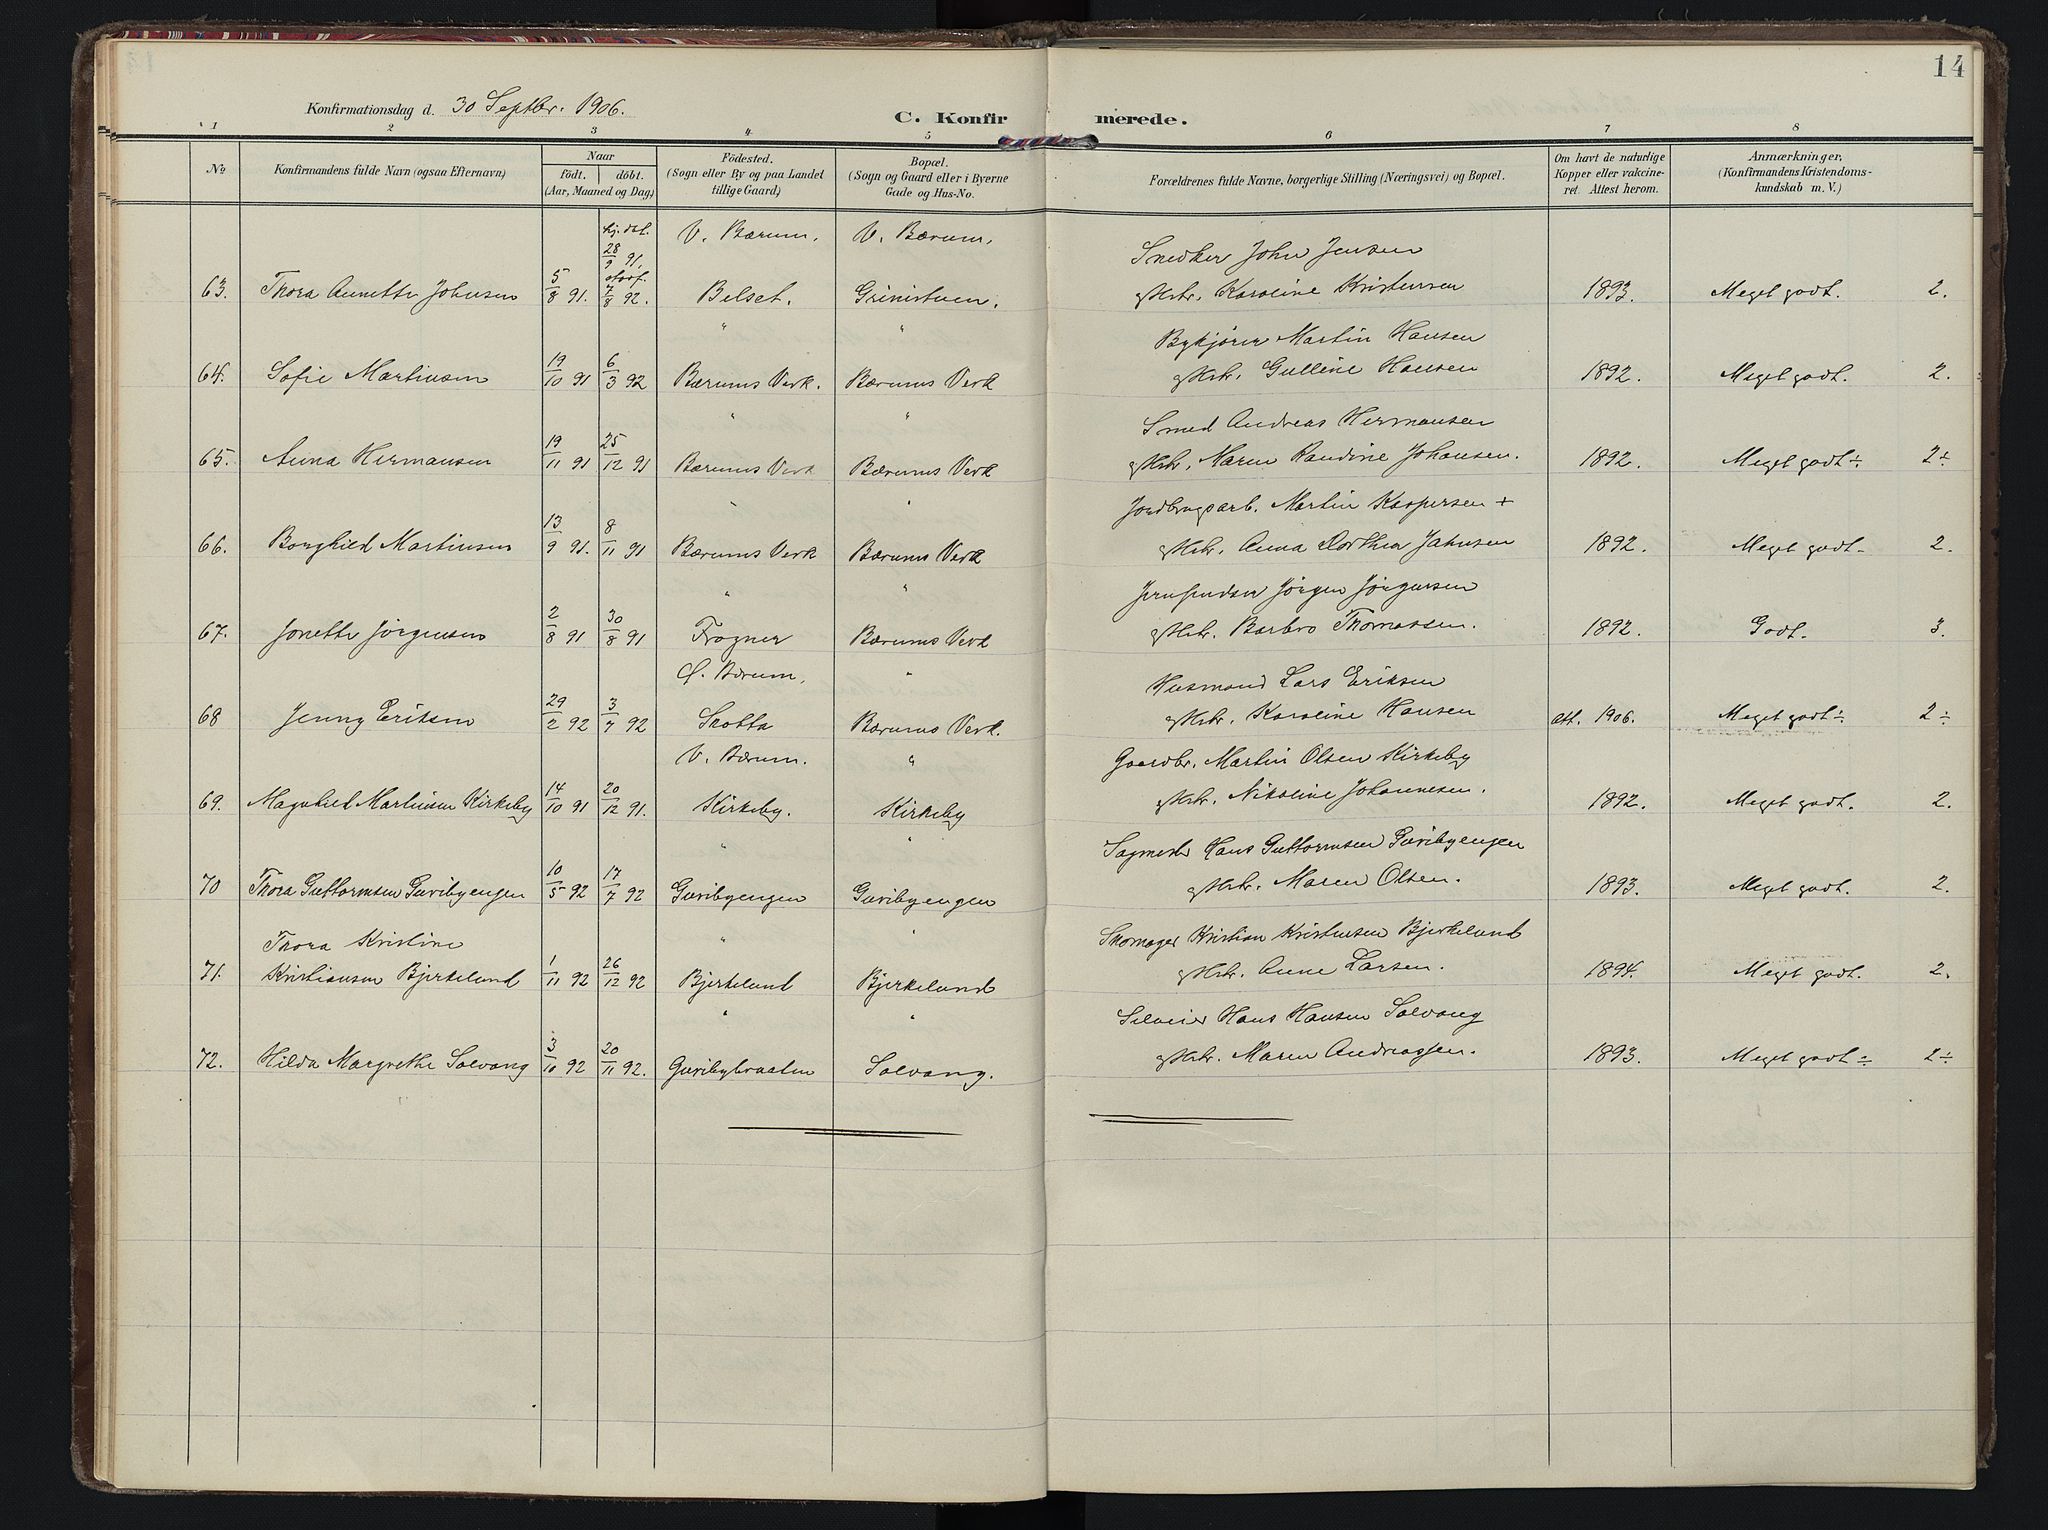 14
Konfirmationsdag d. 30 Septbr. 1906.
C. Konfirmerede.
1 2 3 4 5 6 7 8
No
Konfirmandens fulde Navn (ogsaa Efternavn)
Naar
födt. döbt.
(Aar, Maaned og Dag)
Födested.
(Sogn eller By og paa Landet
tillige Gaard)
Bopæl.
(Sogn og Gaard eller i Byerne
Gade og Hus-No.
Forældrenes fulde Navne, borgerlige Stilling (Næringsvei) og Bopæl.
Om havt de naturlige
Kopper eller vakcine-
ret. Attest herom.
Anmærkninger,
(Konfirmandens Kristendoms-
kundskab m. V.)
hj. dbt. 28/9 91, V. Bærum. V. Bærum. Snedker John Jensen
63. Thora Annette Johnsen 5/8 91. 7/8 92. Belset. Grinistuen. Karoline Kristensen 1893. Meget godt. 2.
" " Bykjører Martin Hansen
64. Sofie Martinsen 19/10 91 6/3 92 Bærums Verk. Bærums Verk Gulline Hansen 1892. Meget godt. 2.
" " Smed Andreas Hermansen
65. Anna Hermansen 19/11 91 25/12 91 Bærums Verk Bærums Verk Maren Randine Johansen. 1892. Meget godt ÷ 2÷
" " Jordbrugsarb. Martin Kaspersen +
66. Borghild Martinsen 13/9 91. 8/11 91 Bærums Verk Bærums Verk Anna Dorthea Jahnsen 1892. Meget godt 2.
" " Jørgen Jørgensen
67. Jonette Jørgensen 2/8 91 30/8 91 Frogner Bærums Verk Barbro Thomassen. 1892. Godt. 3.
Ø. Bærum. " Husmand Lars Eriksen
68 Jenny Eriksen 29/2 92 3/7 92 Skotta Bærums Verk. Karoline Hansen att. 1906. Meget godt ÷ 2÷
V. Bærum. " Gaardbr. Martin Olsen Kirkeby
69. Magnhild Martinsen Kirkeby 14/10 91 20/12 91. Kirkeby. Kirkeby Nikoline Johannesen. 1892. Meget godt. 2.
" " Sagmester Hans Guttormsen Guribyengen
70 Thora Guttormsen Guribyengen 10/5 92 17/7 92 Guribyengen Guribyengen Maren Olsen. 1893. Meget godt. 2.
Thora Kristine " " Skomager Kristian Kristensen Bjerkelund
71. Kristiansen Bjerkelund 1/11 92 26/12 92 Bjerkelund Bjerkelund Anne Larsen. 1894. Meget godt. 2.
" " Hans Hansen Solvang
72. Hilda Margrethe Solvang 3/10 92 20/11 92. Guribybraaten Solvang. Maren Andreassen. 1893. Meget godt ÷ 2÷